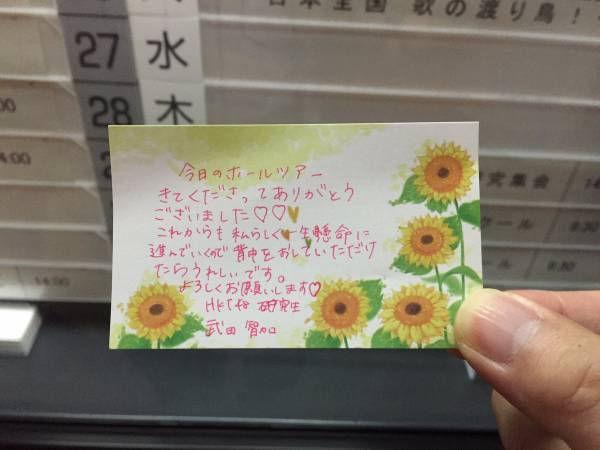 日本全国 歌の渡り鳥!
27 水
28 木
14:00
14:00
9:30
9:30
今日のホールツアー
きてくださってありがとう
ございました♡♡
これからも私らしく一生懸命に
進んでいくので背中をおしていただけ
たらうれしいです。
よろしくお願いします♡
HKT48 研究生
武田 智加